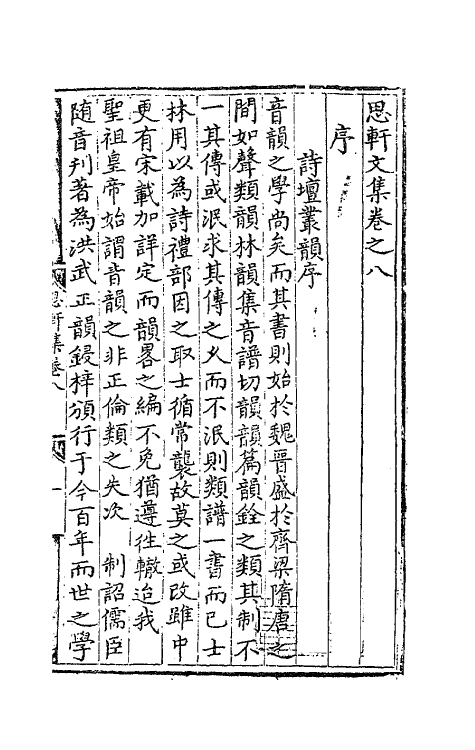 思軒文集卷之八
序
詩壇叢韻序
音韻之學尚矣而其書則始於魏晋盛於齊梁隋唐之
間如聲類韻林韻集音譜切韻韻篇韻銓之類其制不
一其傳或泯求其傳之乆而不泯則類譜一書而已士
林用以為詩禮部因之取士循常襲故莫之或改雖中
更有宋載加詳定而韻畧之編不免猶遵徃轍迨我
聖祖皇帝始謂音韻之非正倫類之失次 制詔儒臣
随音刋著為洪武正韻鋟梓頒行于今百年而世之學
思軒集卷八